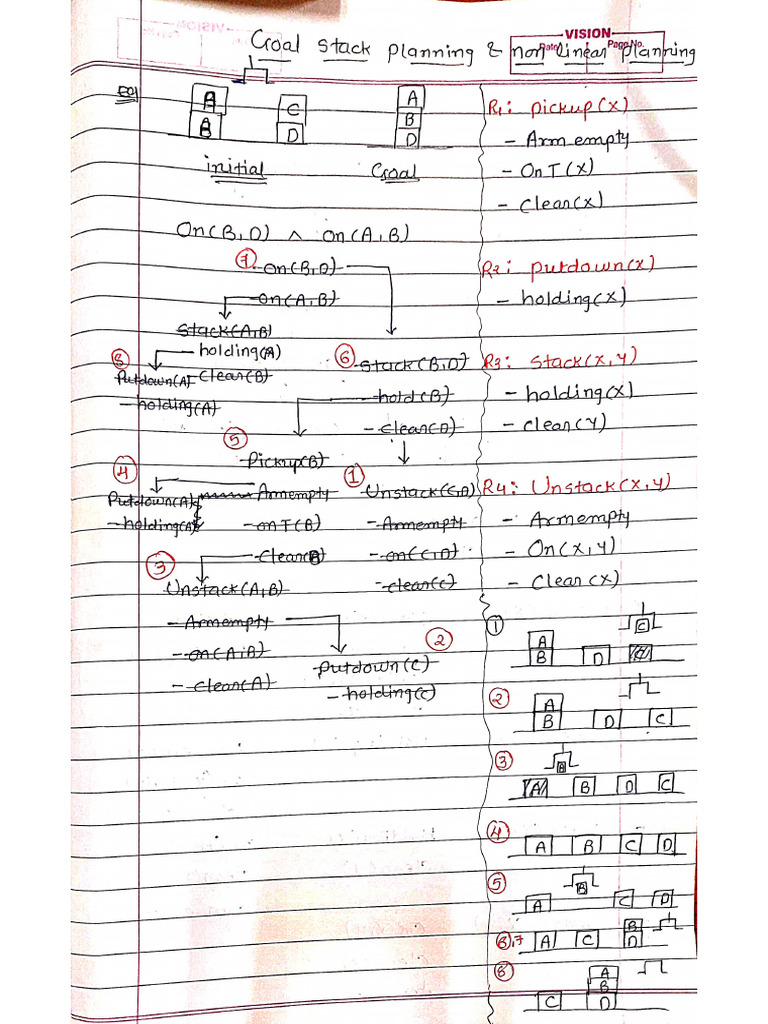 VISION
Date
Page No.
Goal Stack planning & non linear planning
EQ1
A
B
C
D
A
B
D
initial
Goal
On(B,D) ∧ on(A,B)
⑦ on(B,D)
on(A,B)
Stack(A,B)
- holding(A)
⑧
Putdown(A)
- clear(B)
- holding(A)
⑥ Stack(B,D)
- hold(B)
- clear(D)
⑤
Pickup(B)
④
Putdown(A)
- holding(A)
- Armempty
- onT(B)
- clear(B)
①
Unstack(C,D)
- Armempty
- on(C,D)
- clear(C)
③
Unstack(A,B)
- Armempty
- on(A,B)
- clear(A)
②
putdown(C)
- holding(C)
R1: pickup(x)
- Arm empty
- OnT(x)
- clear(x)
R2: putdown(x)
- holding(x)
R3: stack(x,y)
- holding(x)
- clear(y)
R4: Unstack(x,y)
- Armempty
- On(x,y)
- Clear(x)
①
C
A
B D
②
A
B D C
③
A B D C
④
A B C D
⑤
B
A C D
⑥,7
B
A C D
⑧
A
B
C D